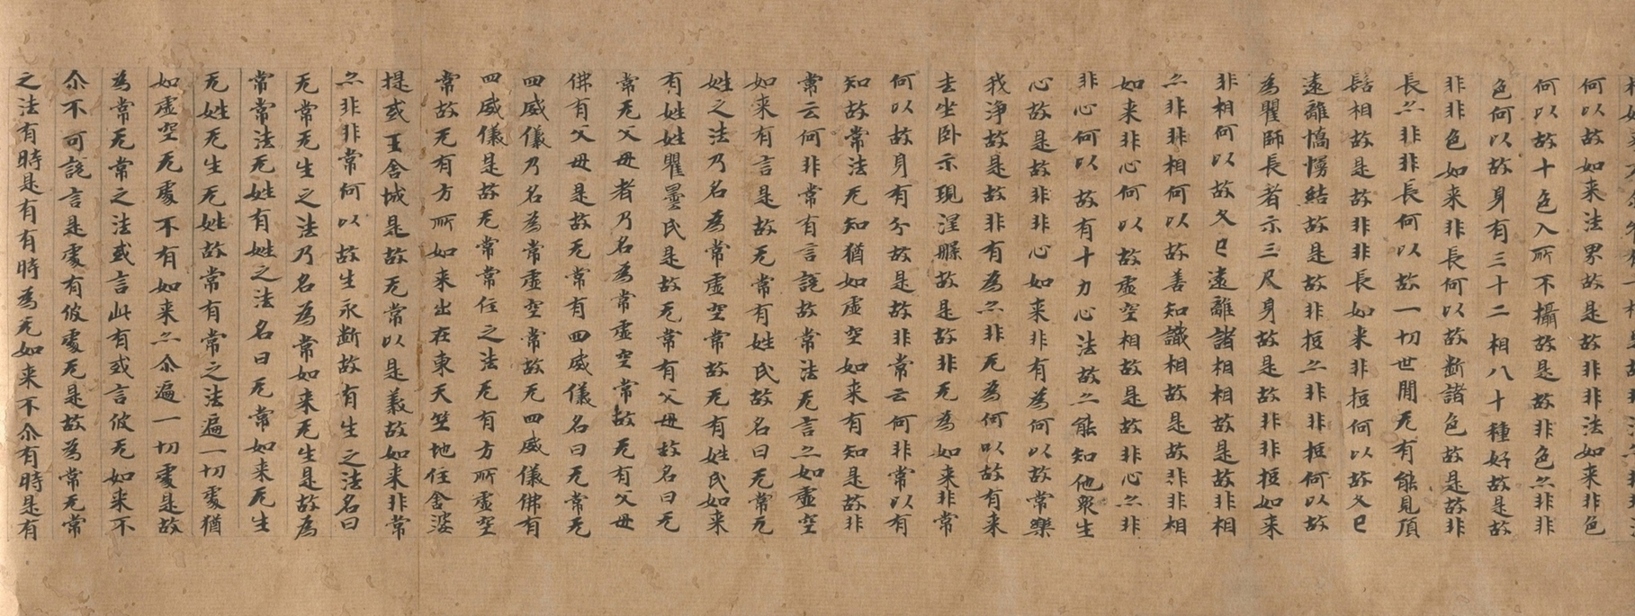 何以故如来法界故是故非非法如来非色
何以故十色入所不攝故是故非色亦非非
色何以故身有三十二相八十種好故是故
非非色如来非長何以故斷諸色故是故非
長亦非非長何以故一切世間无有能見頂
髻相故是故非非長如来非捉何以故久已
遠離憍慢結故是故非捉亦非非捉何以故
為瞿師長者示三尺身故是故非非捉如来
非相何以故久已遠離諸相相故是故非相
亦非非相何以故善知識相故是故非非相
如来非心何以故虚空相故是故非心亦非
非心何以故有十力心法故亦能知他衆生
心故是故非非心如来非有為何以故常樂
我淨故是故非有為亦非无為何以故有来
去坐卧示現涅槃故是故非无為如来非常
何以故身有分故是故非常云何非常以有
知故常法无知猶如虚空如来有知是故非
常云何非常有言說故常法无言亦如虚空
如来有言是故无常有姓氏故名曰无常无
姓之法乃名為常虚空常故无有姓氏如来
有姓姓瞿曇氏是故无常有父母故名曰无
常无父母者乃名為常虚空常故无有父母
佛有父母是故无常有四威儀名曰无常无
四威儀乃名為常虚空常故无四威儀佛有
四威儀是故无常常住之法无有方所虚空
常故无有方所如来出在東天竺地住舍婆
提或王舍城是故无常以是義故如来非常
亦非非常何以故生永斷故有生之法名曰
无常无生之法乃名為常如来无生是故為
常常法无姓有姓之法名曰无常如来无生
无姓无生无姓故常有常之法遍一切處猶
如虚空无處不有如来亦尒遍一切處是故
為常无常之法或言此有或言彼无如来不
尒不可說言是處有彼處无是故為常无常
之法有時是有有時為无如来不尒有時是有